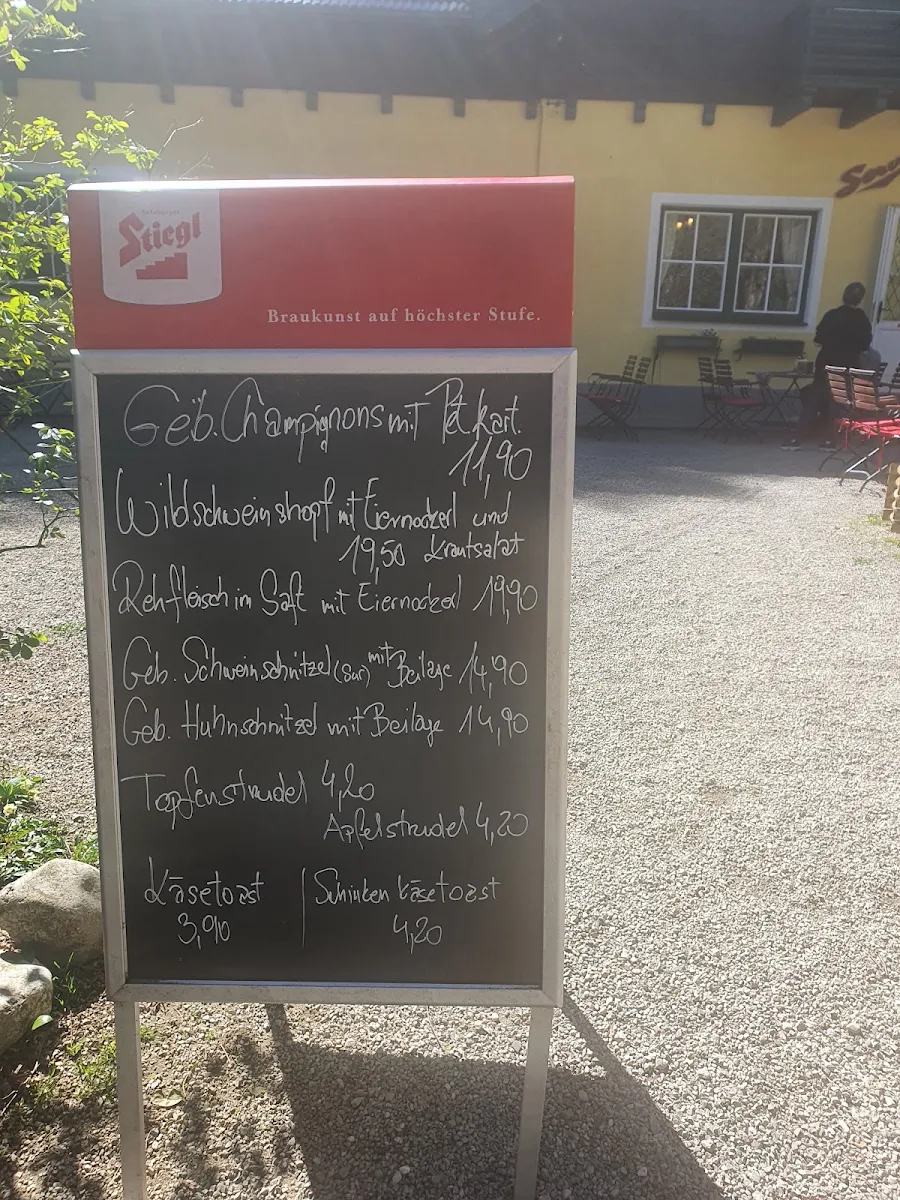 Salzburger
Stiegl
Braukunst auf höchster Stufe.
Geb. Champignons mit Pet.kart.
11,90
Wildschweinshopf mit Eiernockerl und
19,50 Krautsalat
Rehfleisch im Saft mit Eiernockerl 19,90
Geb. Schweinschnitzel (Sur) mit Beilage 14,90
Geb. Huhnschnitzel mit Beilage 14,90
Topfenstrudel 4,20
Apfelstrudel 4,20
Käsetoast | Schinken Käsetoast
3,90 4,20